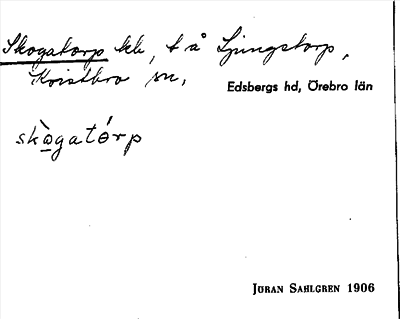 Skogatorp lh, t å Ljungstorp,
Kvistbro sn,
Edsbergs hd, Örebro län
skògatórp
JÖRAN SAHLGREN 1906